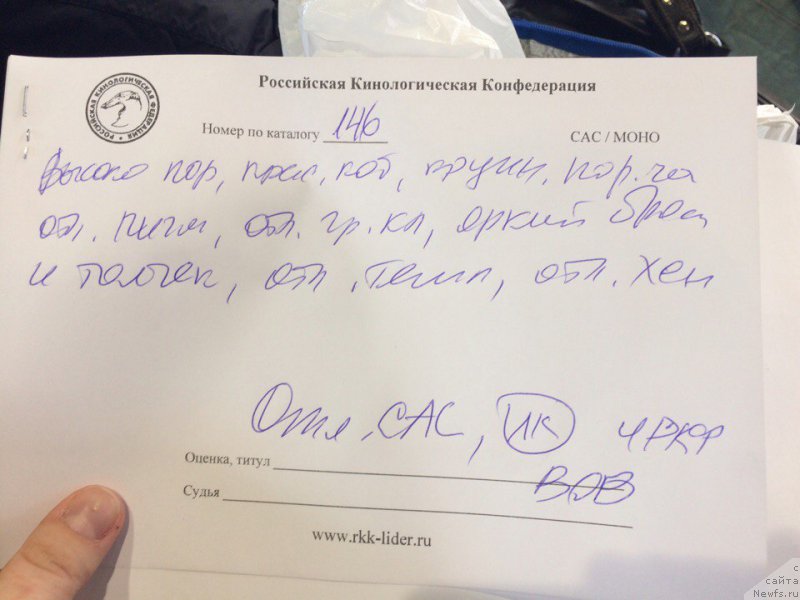 Российская Кинологическая Конфедерация
РОССИЙСКАЯ КИНОЛОГИЧЕСКАЯ ФЕДЕРАЦИЯ
Номер по каталогу 146
САС / МОНО
Высоко пор, прек, коб, крупн, пор.
отл. пигм, отл. гр. кл, яркий брос
и толчек, отл. темп, отл. хен
Отл, САС, ЛК ЧРКФ
Оценка, титул
ВОВ
Судья
www.rkk-lider.ru
с
сайта
Newfs.ru